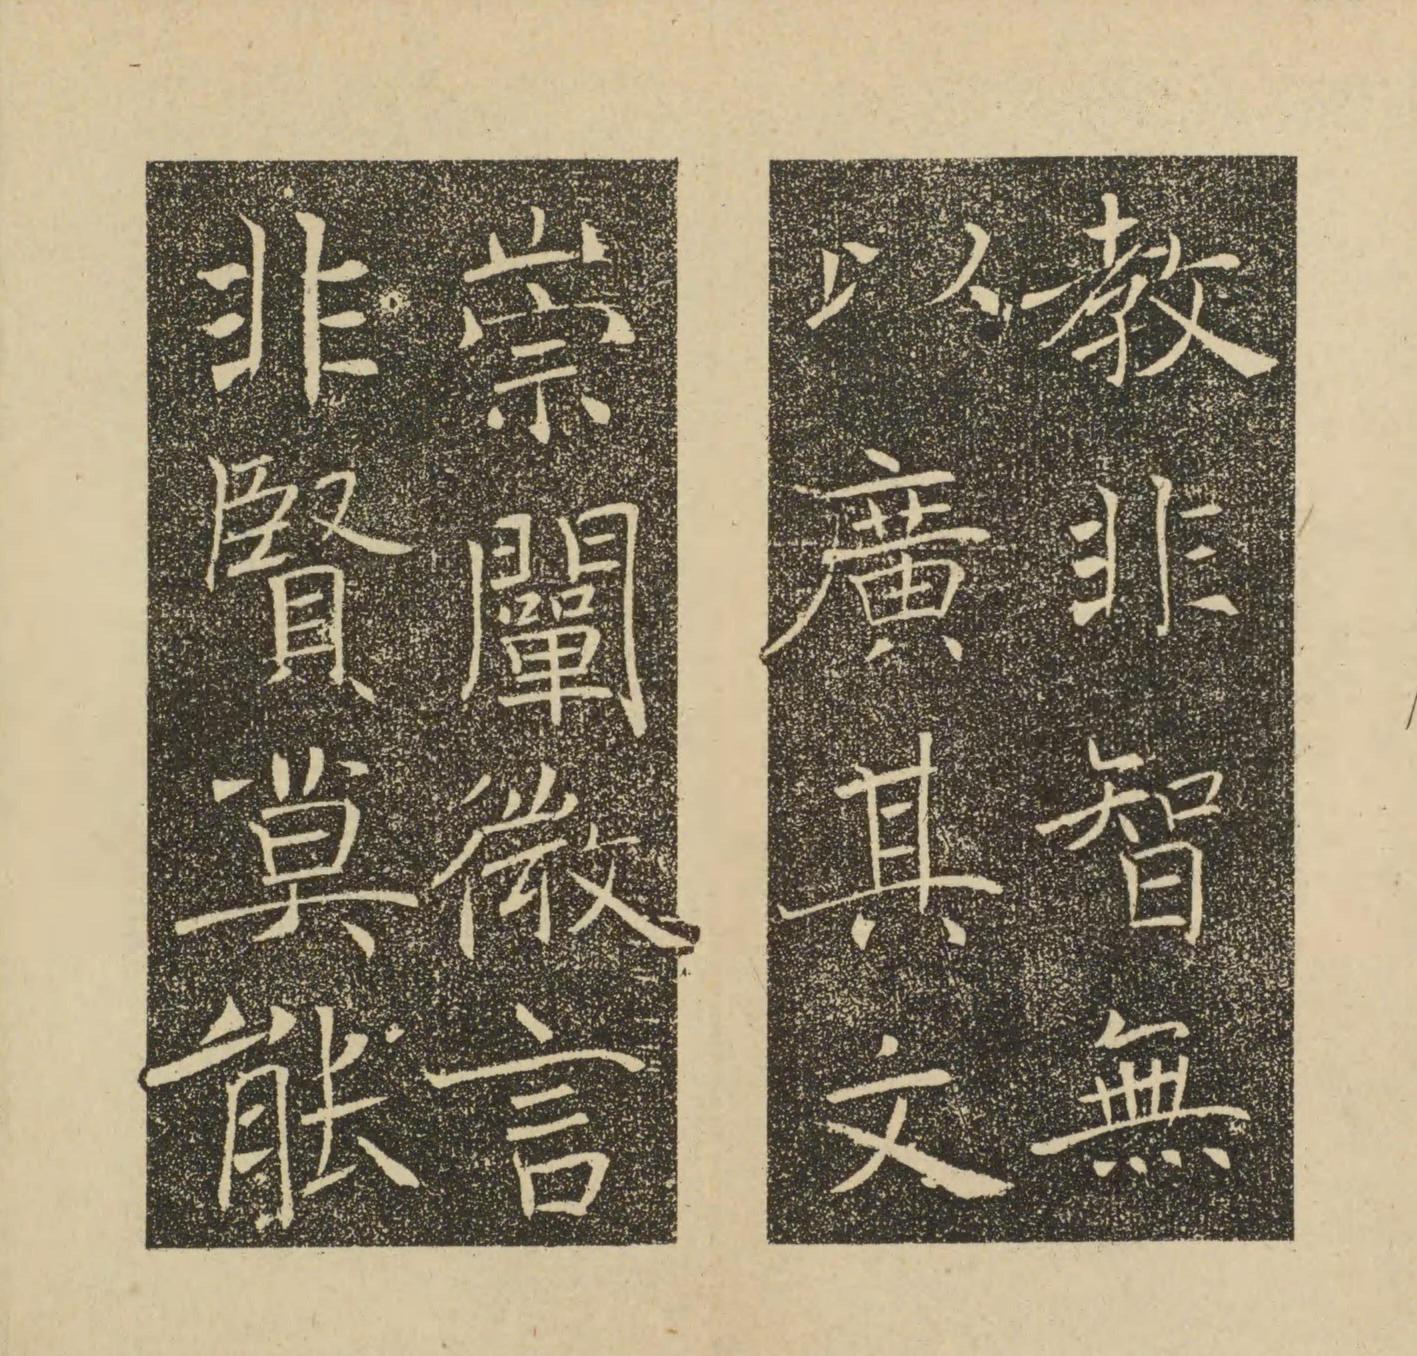 教非智無
以廣其文
崇闡微言
非賢莫能